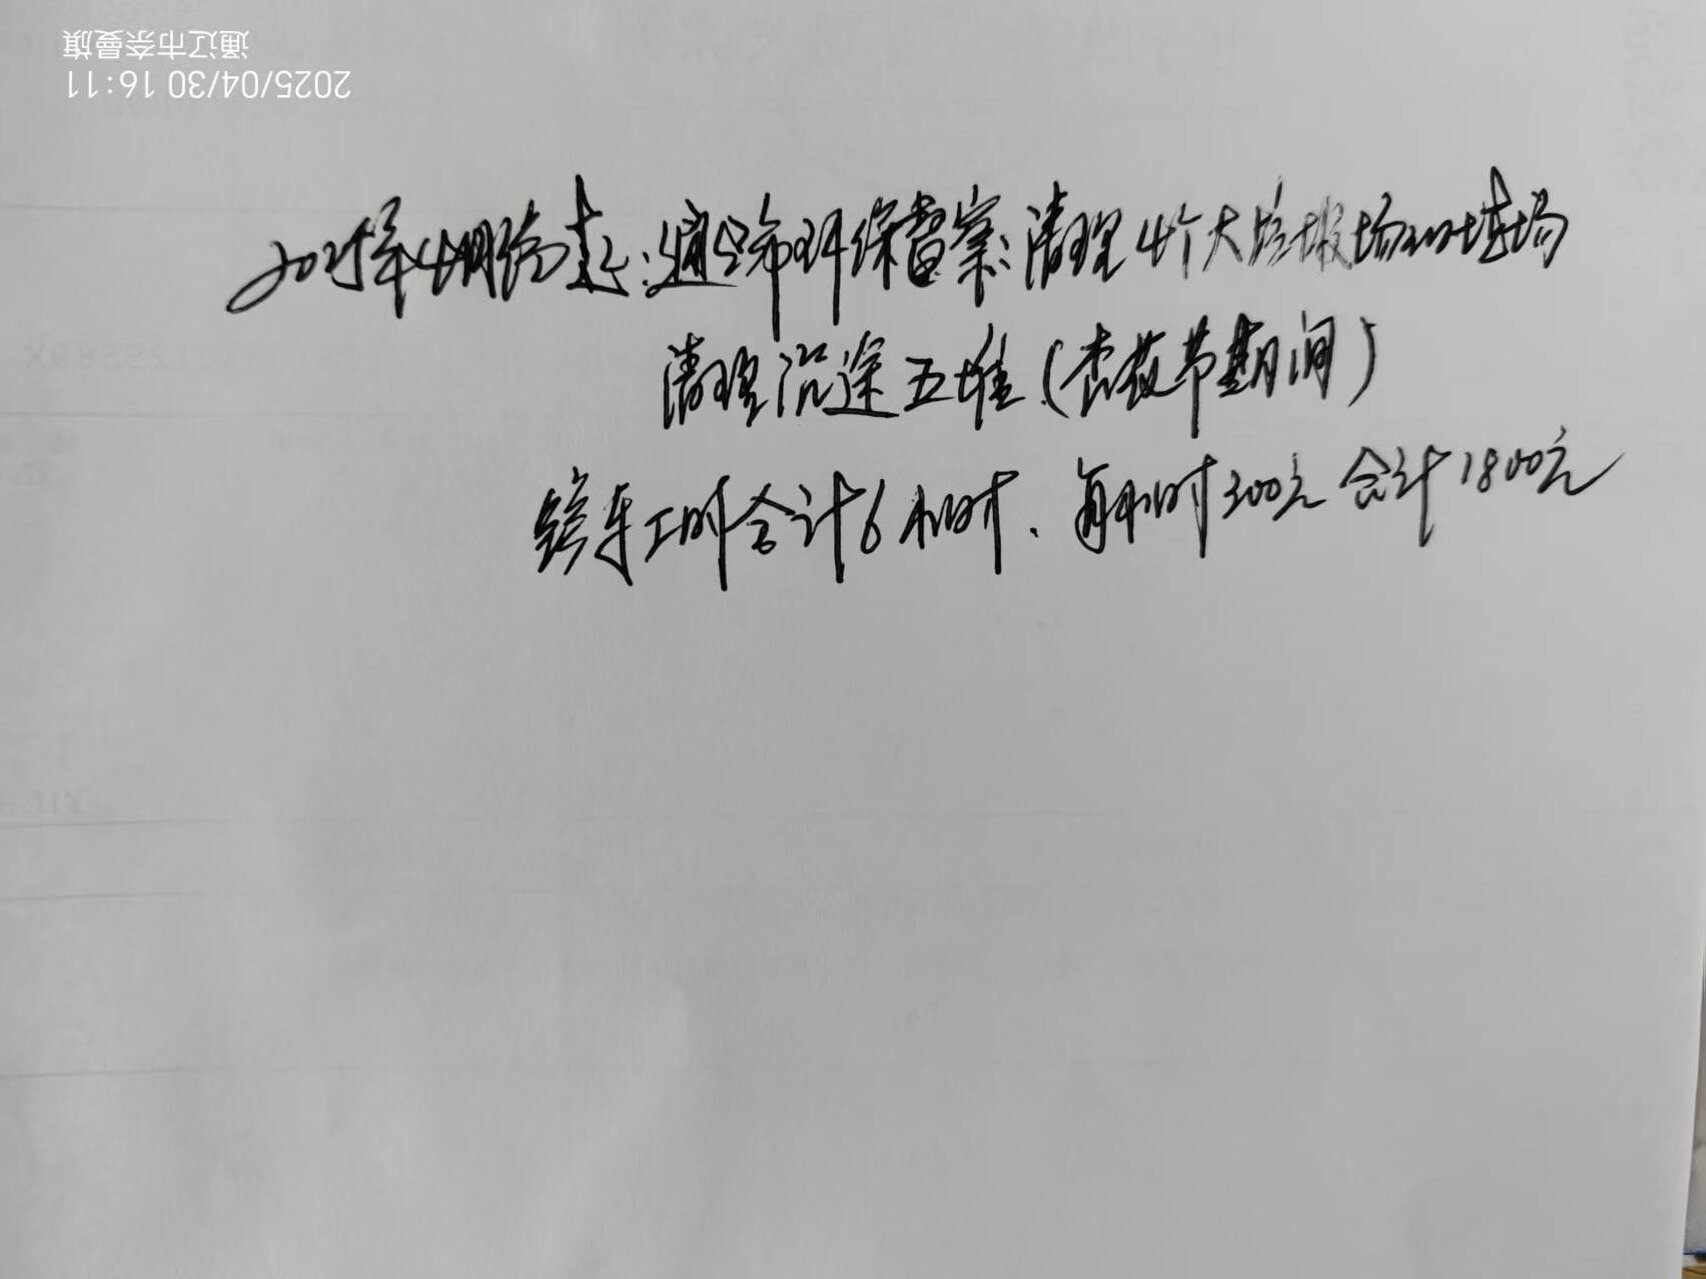 通辽市奈曼旗
2025/04/30 16:11
2025年4月份支：通辽市环保督察：清理4个大垃圾场
清理沿途五堆（杏花节期间）
铲车工时合计6小时、每小时300元 合计1800元